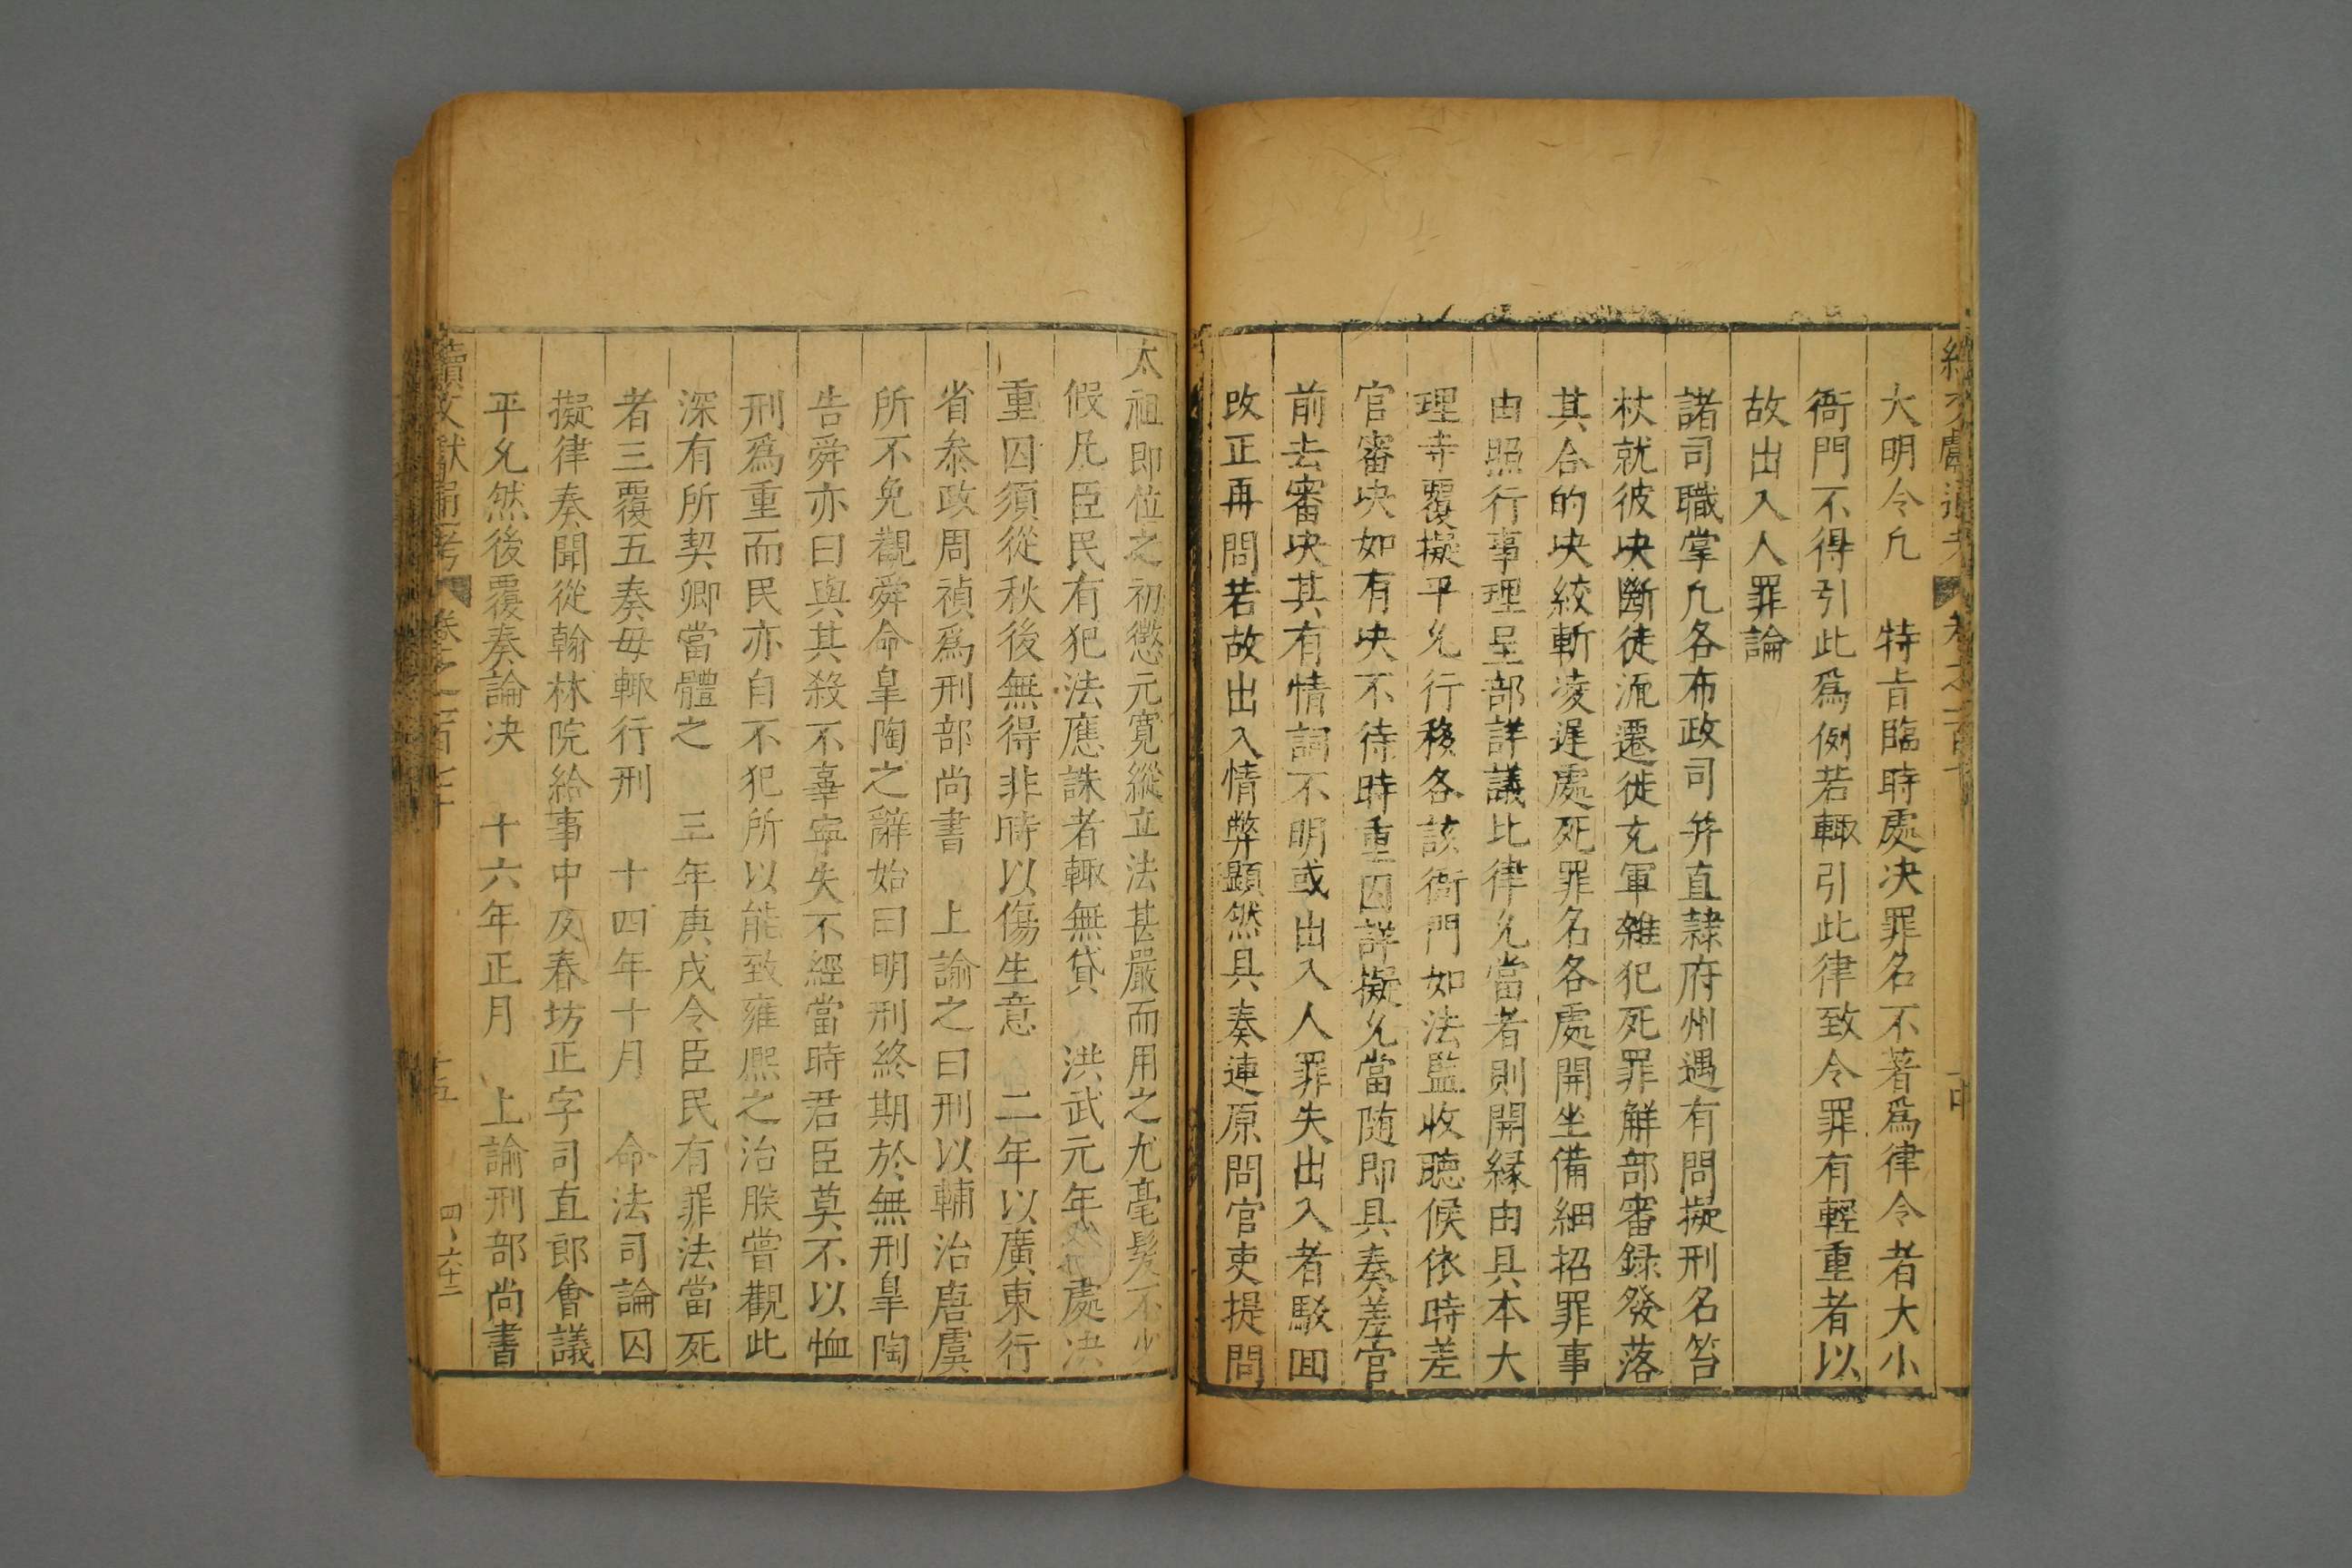 大明令凡　特旨臨時處决罪名不著爲律令者大小
衙門不得引此爲例若輙引此律致令罪有輕重者以
故出入人罪論
諸司職掌凡各布政司并直隷府州遇有問擬刑名笞
杖就彼决斷徒流遷徙充軍雜犯死罪解部審録發落
其合的决絞斬凌遲處死罪名各處開坐備細招罪事
由照行事理呈部詳議比律允當者則開縁由具本大
理寺覆擬平允行移各該衙門如法監收聽候依時差
官審决如有决不待時重囚詳擬允當随即具奏差官
前去審决其有情詞不明或出入人罪失出入者駁回
改正再問若故出入情弊顯然具奏連原問官吏提問
太祖即位之初懲元寛縱立法甚嚴而用之尤毫髮不少
假凡臣民有犯法應誅者輙無貸　洪武元年處决
重囚須從秋後無得非時以傷生意　二年以廣東行
省叅政周禎爲刑部尚書　上諭之曰刑以輔治唐虞
所不免觀舜命臯陶之辭始曰明刑終期於無刑臯陶
告舜亦曰與其殺不辜寜失不經當時君臣莫不以恤
刑爲重而民亦自不犯所以能致雍熈之治朕嘗觀此
深有所契卿當體之　三年庚戌令臣民有罪法當死
者三覆五奏毋輙行刑　十四年十月　命法司論囚
擬律奏聞從翰林院給事中及春坊正字司直郎會議
平允然後覆奏論决　十六年正月　上諭刑部尚書
續文獻通考　卷之一百七十　十五　四、六十二